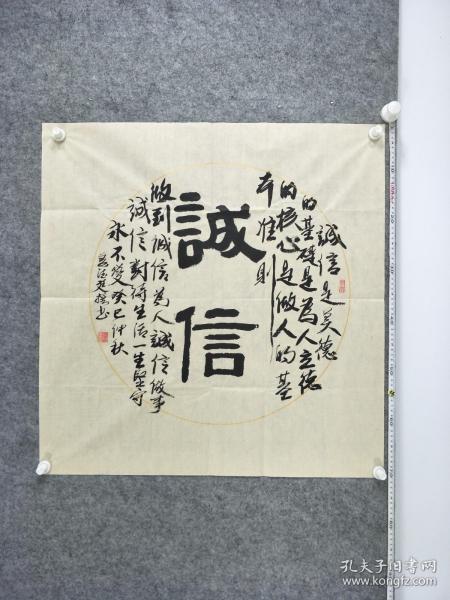 誠信
誠信是美德
的基礎是為人立德
的核心是做人的基
本準則
做到誠信為人誠信做事
誠信對待生活一生堅守
永不變癸巳仲秋
孔夫子旧书网
www.kongfz.com